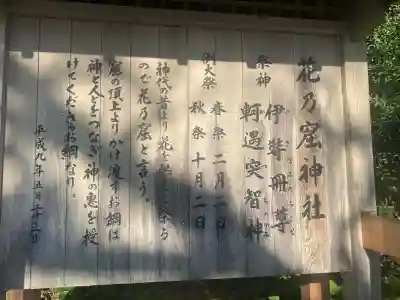 花乃窟神社
祭神 伊弉冊尊
軻遇突智神
例大祭 春祭 二月二日
秋祭 十月二日
神代の昔より花を
ので花乃窟と言う。
窟の頂上よりかけ渡すお綱は
神と人とをつなぎ神の恵を授
けてくださるお綱なり。
平成九年五月二十三日